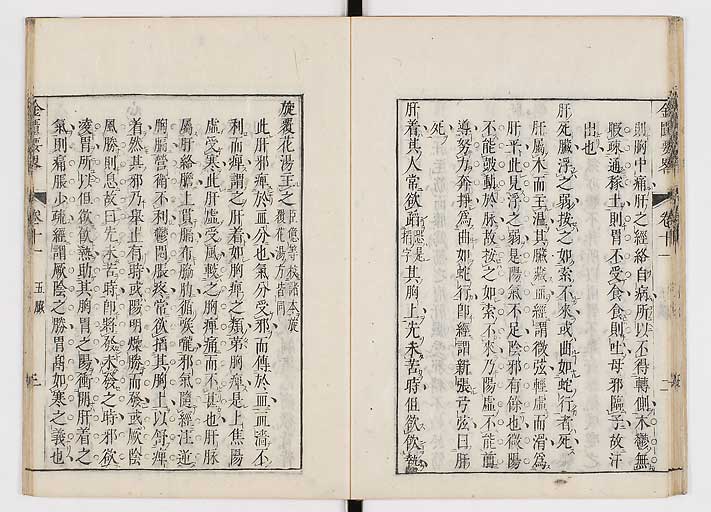 則胸中痛肝之經絡自病所以不得轉側木鬱無
暇疎通稼土則胃不受食食則吐母邪臨子故汗
出也
肝死臟浮之弱按之如索不來或曲如蛇行者死
肝屬木而主溫其臟藏血經謂微弦輕虛而滑為
肝平此見浮之弱是陽氣不足陰邪有餘也微陽
不能鼓動於脉故按之如索不來乃陽虛不能前
導努力奔掙為曲如蛇行即經謂新張弓弦曰肝
死
肝着其人常欲蹈其胸上先未苦時但欲飲熱
旋覆花湯主之臣億等校諸本旋覆花湯方皆同
此肝邪痺於血分也氣分受邪而傳於血血濇不
利而痺謂之肝着如胸痺之類第胸痺是上焦陽
虛受寒此肝虛受風較之胸痺痛而不甚也肝脉
屬肝絡膽上貫膈布脇肋循喉嚨邪氣隨經注逆
胸膈營衛不利鬱悶脹疼常欲搯其胸上以舒痺
着然其邪乃舉止有時或陽明燥勝而發或厥陰
風勝則息故曰先未苦時即將發未發之時邪欲
凌胃所以但欲飲熱助其胸胃之陽衝開肝着之
氣則痛脹少疏經謂厥陰之勝胃鬲如寒之義也
金匱要畧
卷十一
五臟
金匱要畧
卷十一